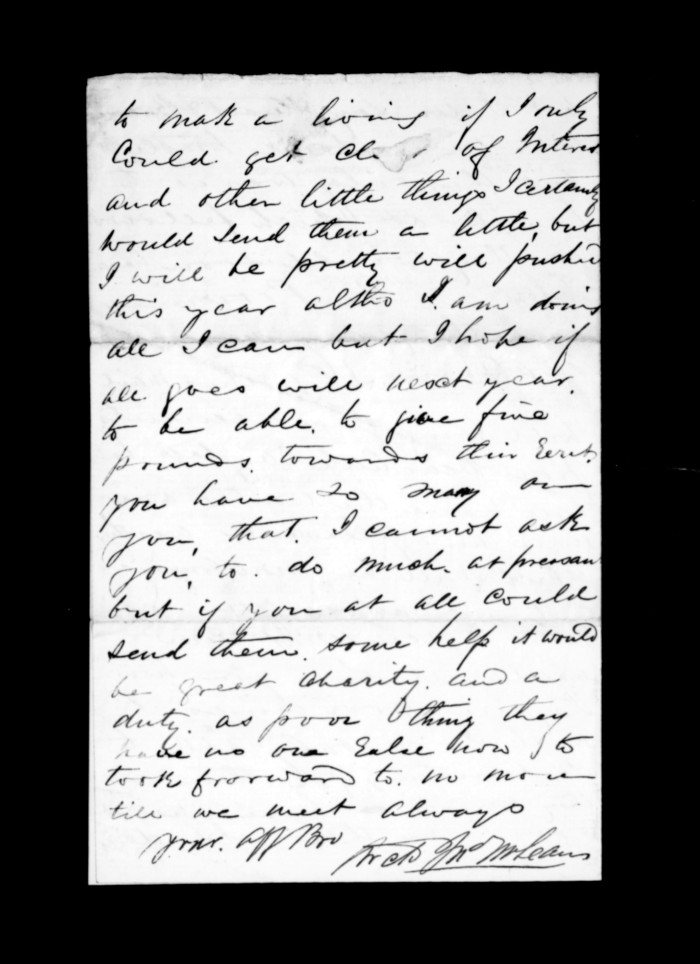 to make a living if I only
Could get clear of Interest
and other little things I certainly
would send them a little, but
I will be pretty will pushed
this year altho I am doing
all I can but I hope if
all goes will next year.
to be able. to give five
pounds. towards their Rent.
you have so many on
you, that. I cannot ask
you, to. do much. at pressant
but if you at all could
send them. some help it would
be great charity. and a
duty. as poor thing they
have no one Ealse now to
look forward to. no more
till we meet always
your. aff Bro
Archd Jno McLean